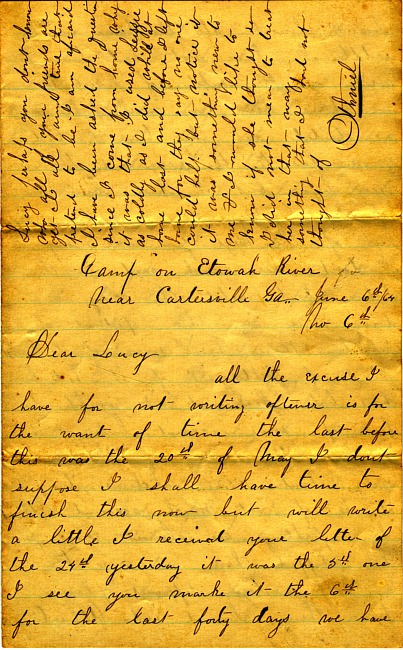 Lucy perhaps you dont know
who all of your friends are
yet I all time that
pretend to be I am afraid
I have been asked the question
since I come from home why
it was that I used Lizzie
as coldly as I did while at
home last and before I left
home for they say no one
could help but notice it
it was something new to
me & I would like to
know if she thought so
I did not mean to treat
her in that way
something that I had not
thought of
Camp on Etowah River
Near Cartersville Ga., June 6th/64
No 6th
Dear Lucy
all the excuse I
have for not writing oftener is for
the want of time the last before
this was the 20th of May I dont
suppose I shall have time to
finish this now but will write
a little I received your letter of
the 24th yesterday it was the 5th one
I see you marke it the 6th
for the last forty days we have